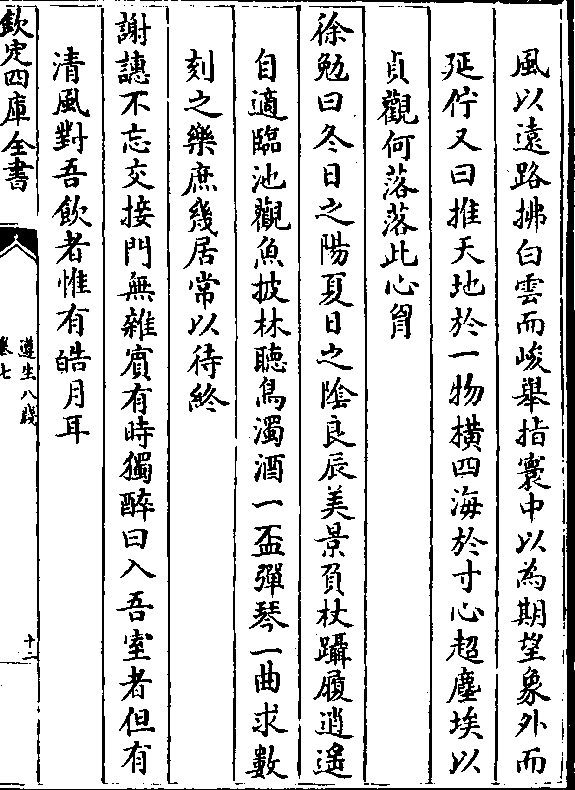 風以遠路拂白雲而峻舉指寰中以為期望象外而
延佇又曰推天地於一物横四海於寸心超塵埃以
貞觀何落落此心胷
徐勉曰冬日之陽夏日之隂良辰美景負杖躡履逍遥
自適臨池觀魚披林聽鳥濁酒一盃彈琴一曲求數
刻之樂庶幾居常以待終
謝譓不忘交接門無雜賓有時獨醉曰入吾室者但有
清風對吾飲者惟有皓月耳
欽定四庫全書
遵生八牋
卷七
十二